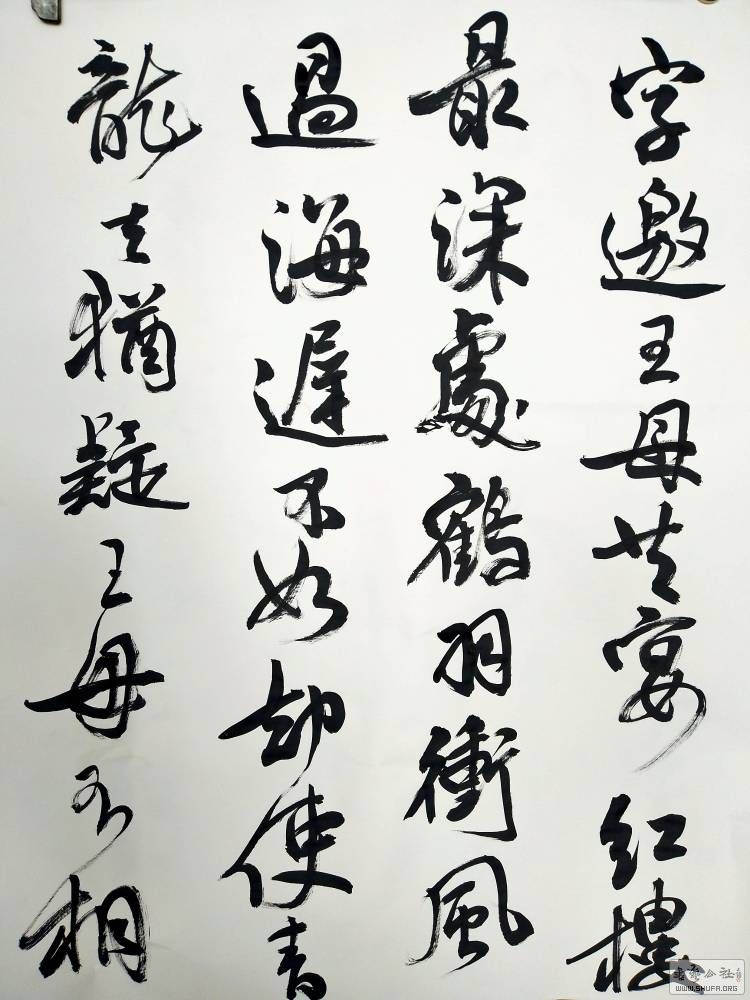 字邀王母共宴紅樓
最深處鶴羽衝風
過海遲不如却使青
龍去猶疑王母不相
WWW.SHUFA.ORG